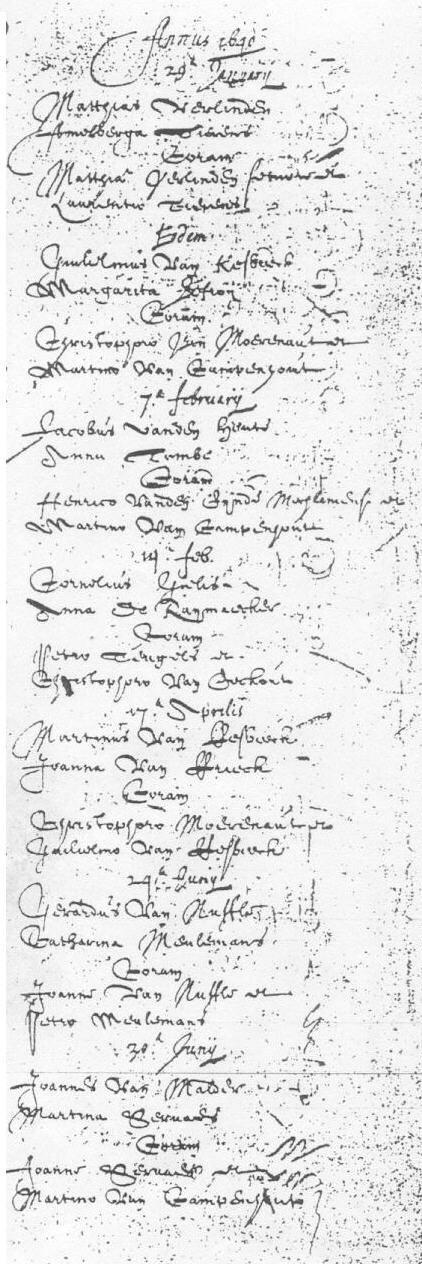 Annus 1640
29ª January
Matthias Verlinden
Amelberga Tierens
Coram
Matthia Verlinden seniore et
Laurentio Tierens
Edem
Guilielmus Van Kesbeeck
Margarita
Coram
Christophoro Moerenaut et
Martino Van Campenhout
7ª february
Jacobus vanden
Anna Tembe
Coram
Henrico Vanden Eynde et
Martino Van Campenhout
14ª feb.
Cornelius Gielis
Anna De Raymaecker
Coram
Petro Tengels et
Christophoro Van Eeckout
17ª Aprilis
Martinus Van Kesbeeck
Joanna Van Krieck
Coram
Christophoro Moerenaut et
Guilielmo Van Kesbeeck
24ª Juny
Gerardus Van Nuffle
Catharina Meulemans
Coram
Joanne Van Nuffle et
Petro Meulemans
30ª Juny
Joannes Van Malder
Martina Servaes
Coram
Joanne Servaes et
Martino Van Campenhout